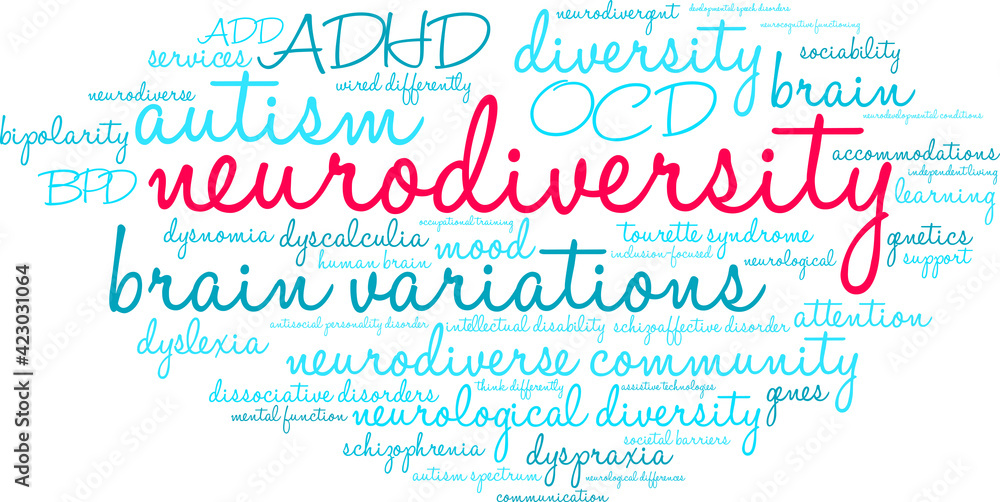 neurodivergent
developmental speech disorders
ADD
ADHD
diversity
neurocognitive functioning
services
sociability
wired differently
brain
neurodiverse
autism
OCD
neurodevelopmental conditions
bipolarity
neurodiversity
accommodations
BPD
independent living
learning
occupational training
dysnomia
dyscalculia
mood
tourette syndrome
genetics
human brain
inclusion-focused
neurological
support
brain variations
antisocial personality disorder
intellectual disability
schizoaffective disorder
attention
dyslexia
neurodiverse community
dissociative disorders
think differently
assistive technologies
genes
mental function
neurological diversity
societal barriers
schizophrenia
dyspraxia
autism spectrum
neurological differences
communication
Adobe Stock | #423031064
Adobe Stock